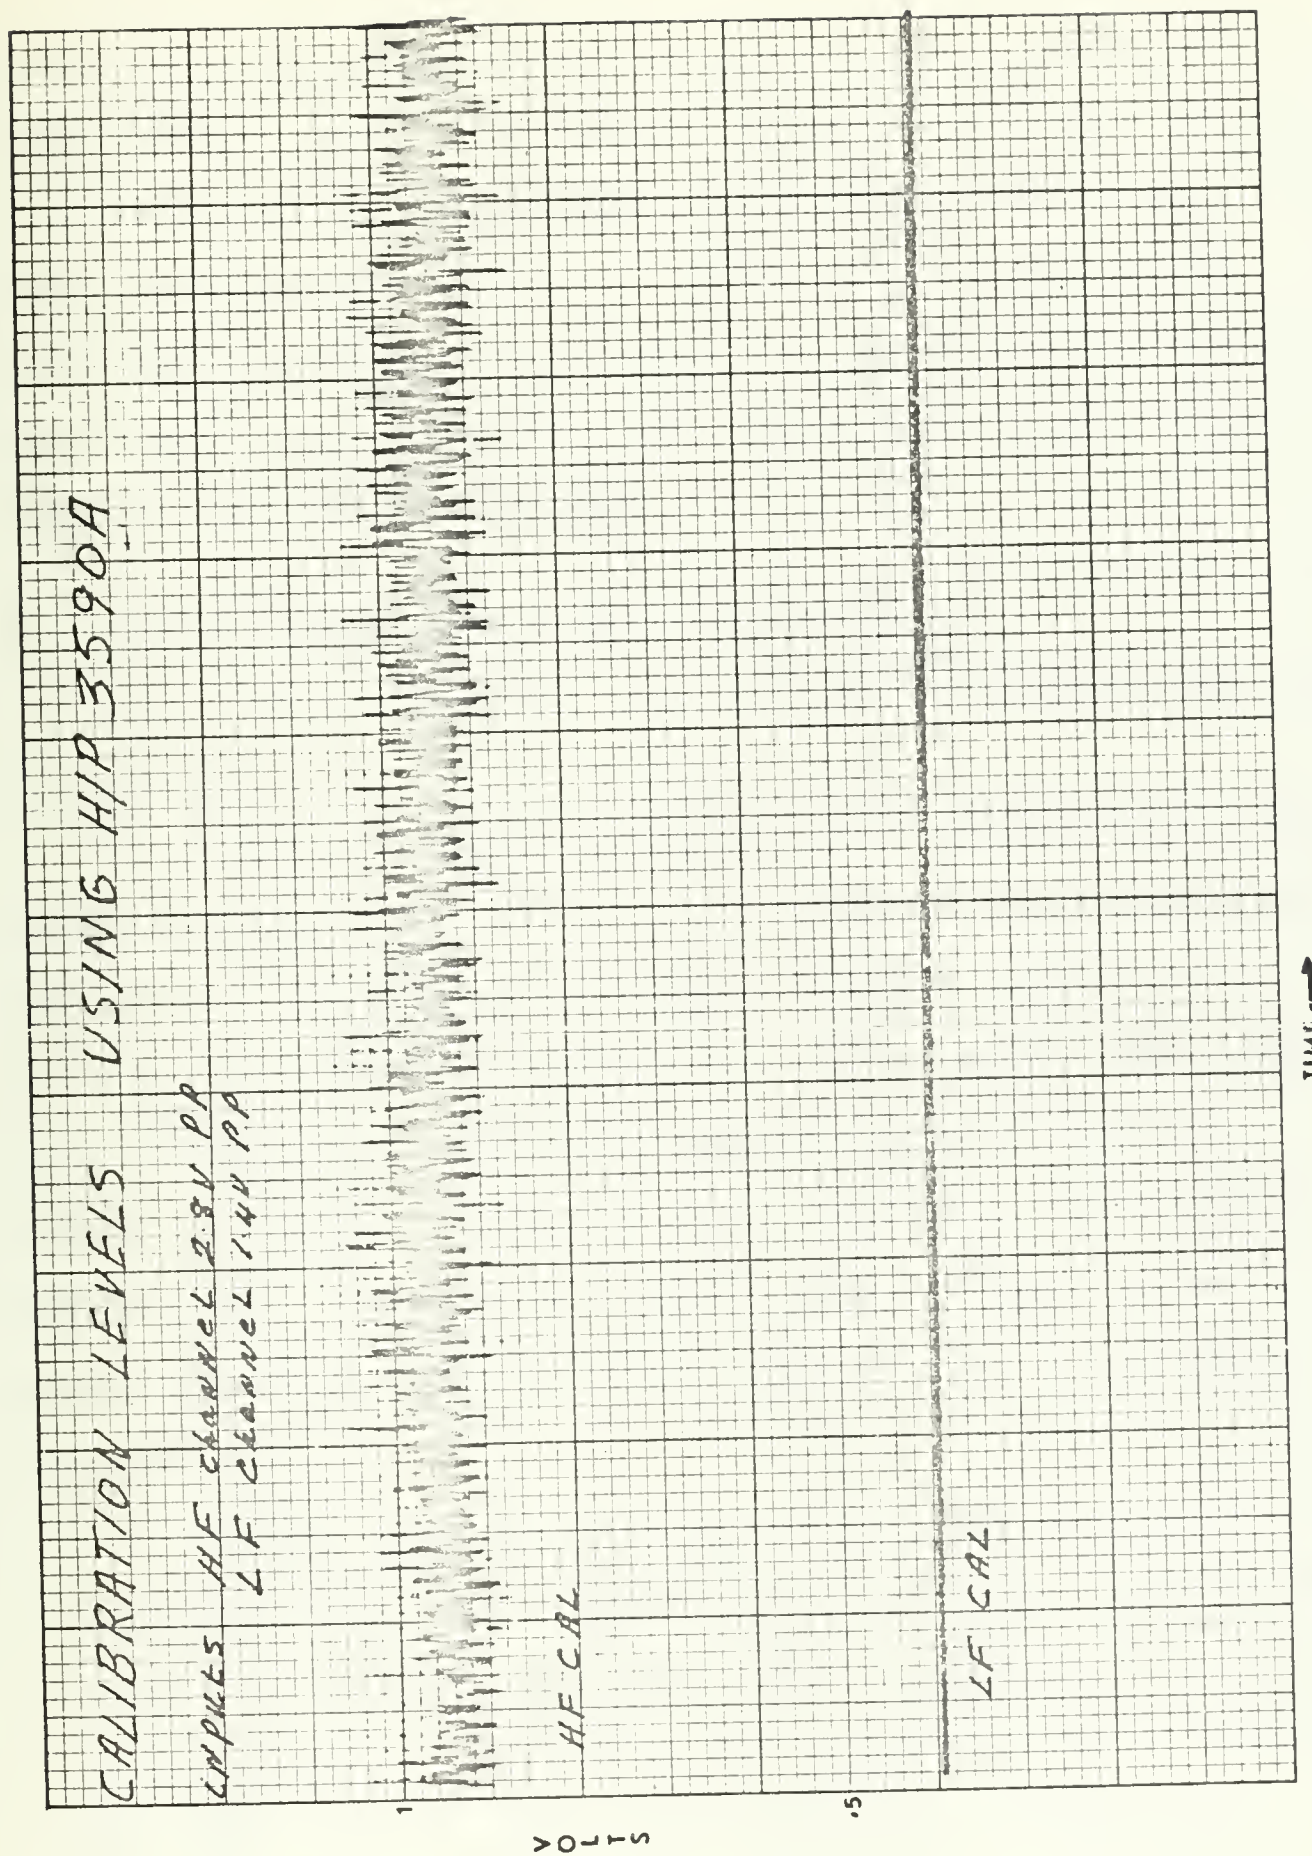 CALIBRATION LEVELS USING H/P 3590A
INPUTS HF CHANNEL 2.8V PP
LF CHANNEL 1.4V PP
1
VOLTS
HF CAL
.5
LF CAL
TIME →